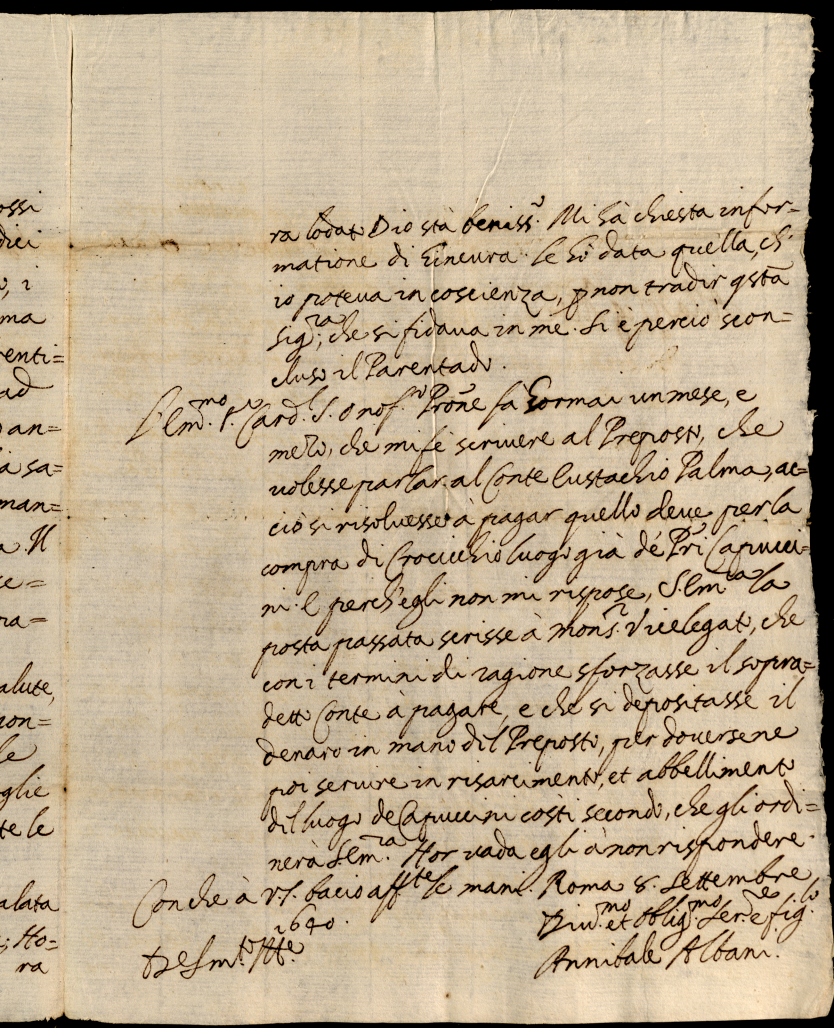 ossi
dici
, i
ma
renti=
ad
an=
à sa=
man=
a. Il
ce=
ra=
alute,
non=
le
glie
te le
alata
; Ho=
ra
ra lodato Dio stà beniss.º Mi hà chiesta infor-
matione di Gineura. le hò data quella, ch'
io poteua in coscienza, ꝑ non tradir qsta
Sig.ra, che si fidaua in me. Si è perciò scon-
cluso il Parentado.
L'Em.mo S.r Card.l S. Onof.o Prone fà hormai un mese, e
mezo, che mi fè scriuere al Preposto, che
volesse parlar al Conte Eustachio Palma, ac=
ciò si risoluesse à pagar quello deue per la
compra di Crocicchio luogo già de' Pri Capucci=
ni. E perch'egli non mi rispose, S. Em.za la
posta passata scrisse à Mons.r Vicelegato, che
con i termini di ragione sforzasse il sopra=
detto Conte à pagare, e che si depositasse il
denaro in mano dil Preposto, per douersene
poi seruire in risarcimento, et abbellimento
dil luogo de Capuccini costì secondo, che gli ordi=
nerà S. Em.za Hor vada egli à non rispondere.
Con che à V.S. bacio aff.te le mani. Roma 8. Settembre
1640.
Di V.S. m.to Ill.re
Diu.mo et Oblig.mo Ser.re e fig.lo
Annibale Albani.